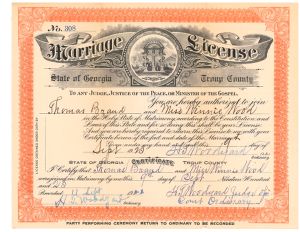 No. 308
Marriage License
State of Georgia Troup County
To any Judge, Justice of the Peace, or Minister of the Gospel.
You are hereby authorized to join
Thomas Brand and Miss Winnie Wood
in the Holy State of Matrimony according to the Constitution and
Laws of this State and for so doing this shall be your License.
And you are hereby required to return this License to me with your
Certificate hereon of the fact and date of the Marriage.
Given under my hand and seal this 9 day of
Sept
CERTIFICATE
STATE OF GEORGIA TROUP COUNTY
I Certify that Thomas Brand and Miss Winnie Wood
were joined in Matrimony by me this 9th day of Sept Nineteen Hundred
and
Judge of
Court Ordinary
PARTY PERFORMING CEREMONY RETURN TO ORDINARY TO BE RECORDED